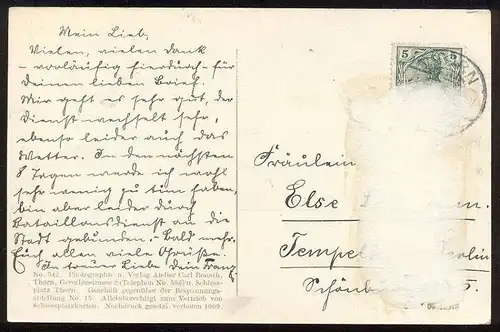 Mein Lieb,
Vielen, vielen Dank
- vorläufig hierdurch - für
Deinen lieben Brief.
Mir geht es sehr gut, der
Dienst wechselt sehr,
ebenso leider auch das
Wetter. In den nächsten
8 Tagen werde ich wohl
sehr wenig zu tun haben,
bin aber leider durch
Bataillonsdienst an die
Stadt gebunden. - Bald mehr.
Euch allen viele Grüße.
In treuer Liebe dein Franz
No. 343. Photographie u. Verlag Atelier Carl Bonath,
Thorn, Gerechtestrasse 2 (Telephon No. 536) u. Schiess-
platz Thorn. Geschäft gegenüber der Bespannungs-
abteilung No. 15. Alleinberechtigt zum Vertrieb von
Schiessplatzkarten. Nachdruck gesetzl. verboten 1909
5 5
Fräulein
Else
Tempel
Schön